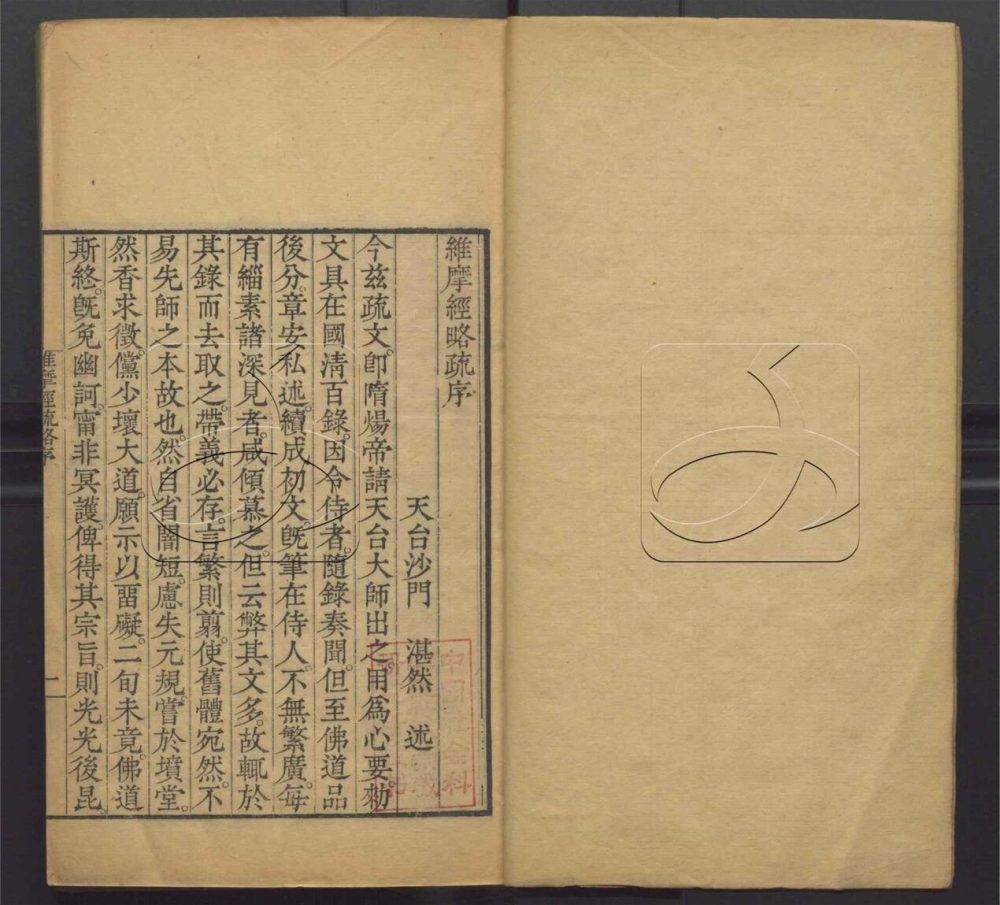 維摩經略疏序
天台沙門 湛然 述
今兹疏文。卽隋煬帝請天台大師出之。用爲心要。勑
文具在國淸百錄。因令侍者。隨錄奏聞。但至佛道品
後分。章安私述。續成初文。旣筆在侍人。不無繁廣。每
有緇素諸深見者。咸傾慕之。但云弊其文多。故輒於
其錄而去取之。帶義必存。言繁則翦。使舊體宛然。不
易先師之本故也。然自省闇短。慮失元規。嘗於墳堂。
然香求徵。儻少壞大道。願示以畱礙。二旬未竟。佛道
斯終。旣免幽訶。甯非冥護。俾得其宗旨。則光光後昆。
維摩經疏略序
一